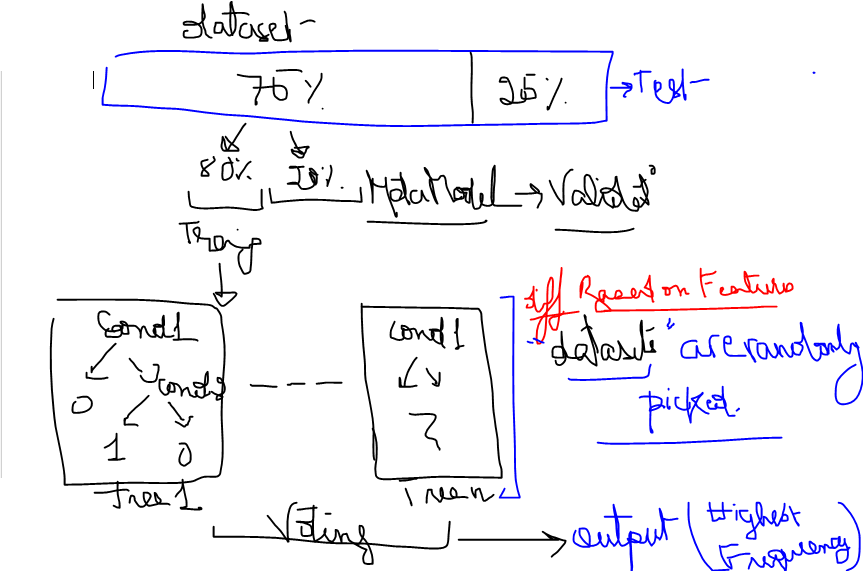 Dataset
75% 25% → Test
80% 20% MetaModel → Validatn
Traing
Cond1
0 cond2
1 0
Tree 1
cond 1
?
Tree n
diff Based on Feature
"datasets" are randomly
picked.
Voting → output (Highest
Frequency)